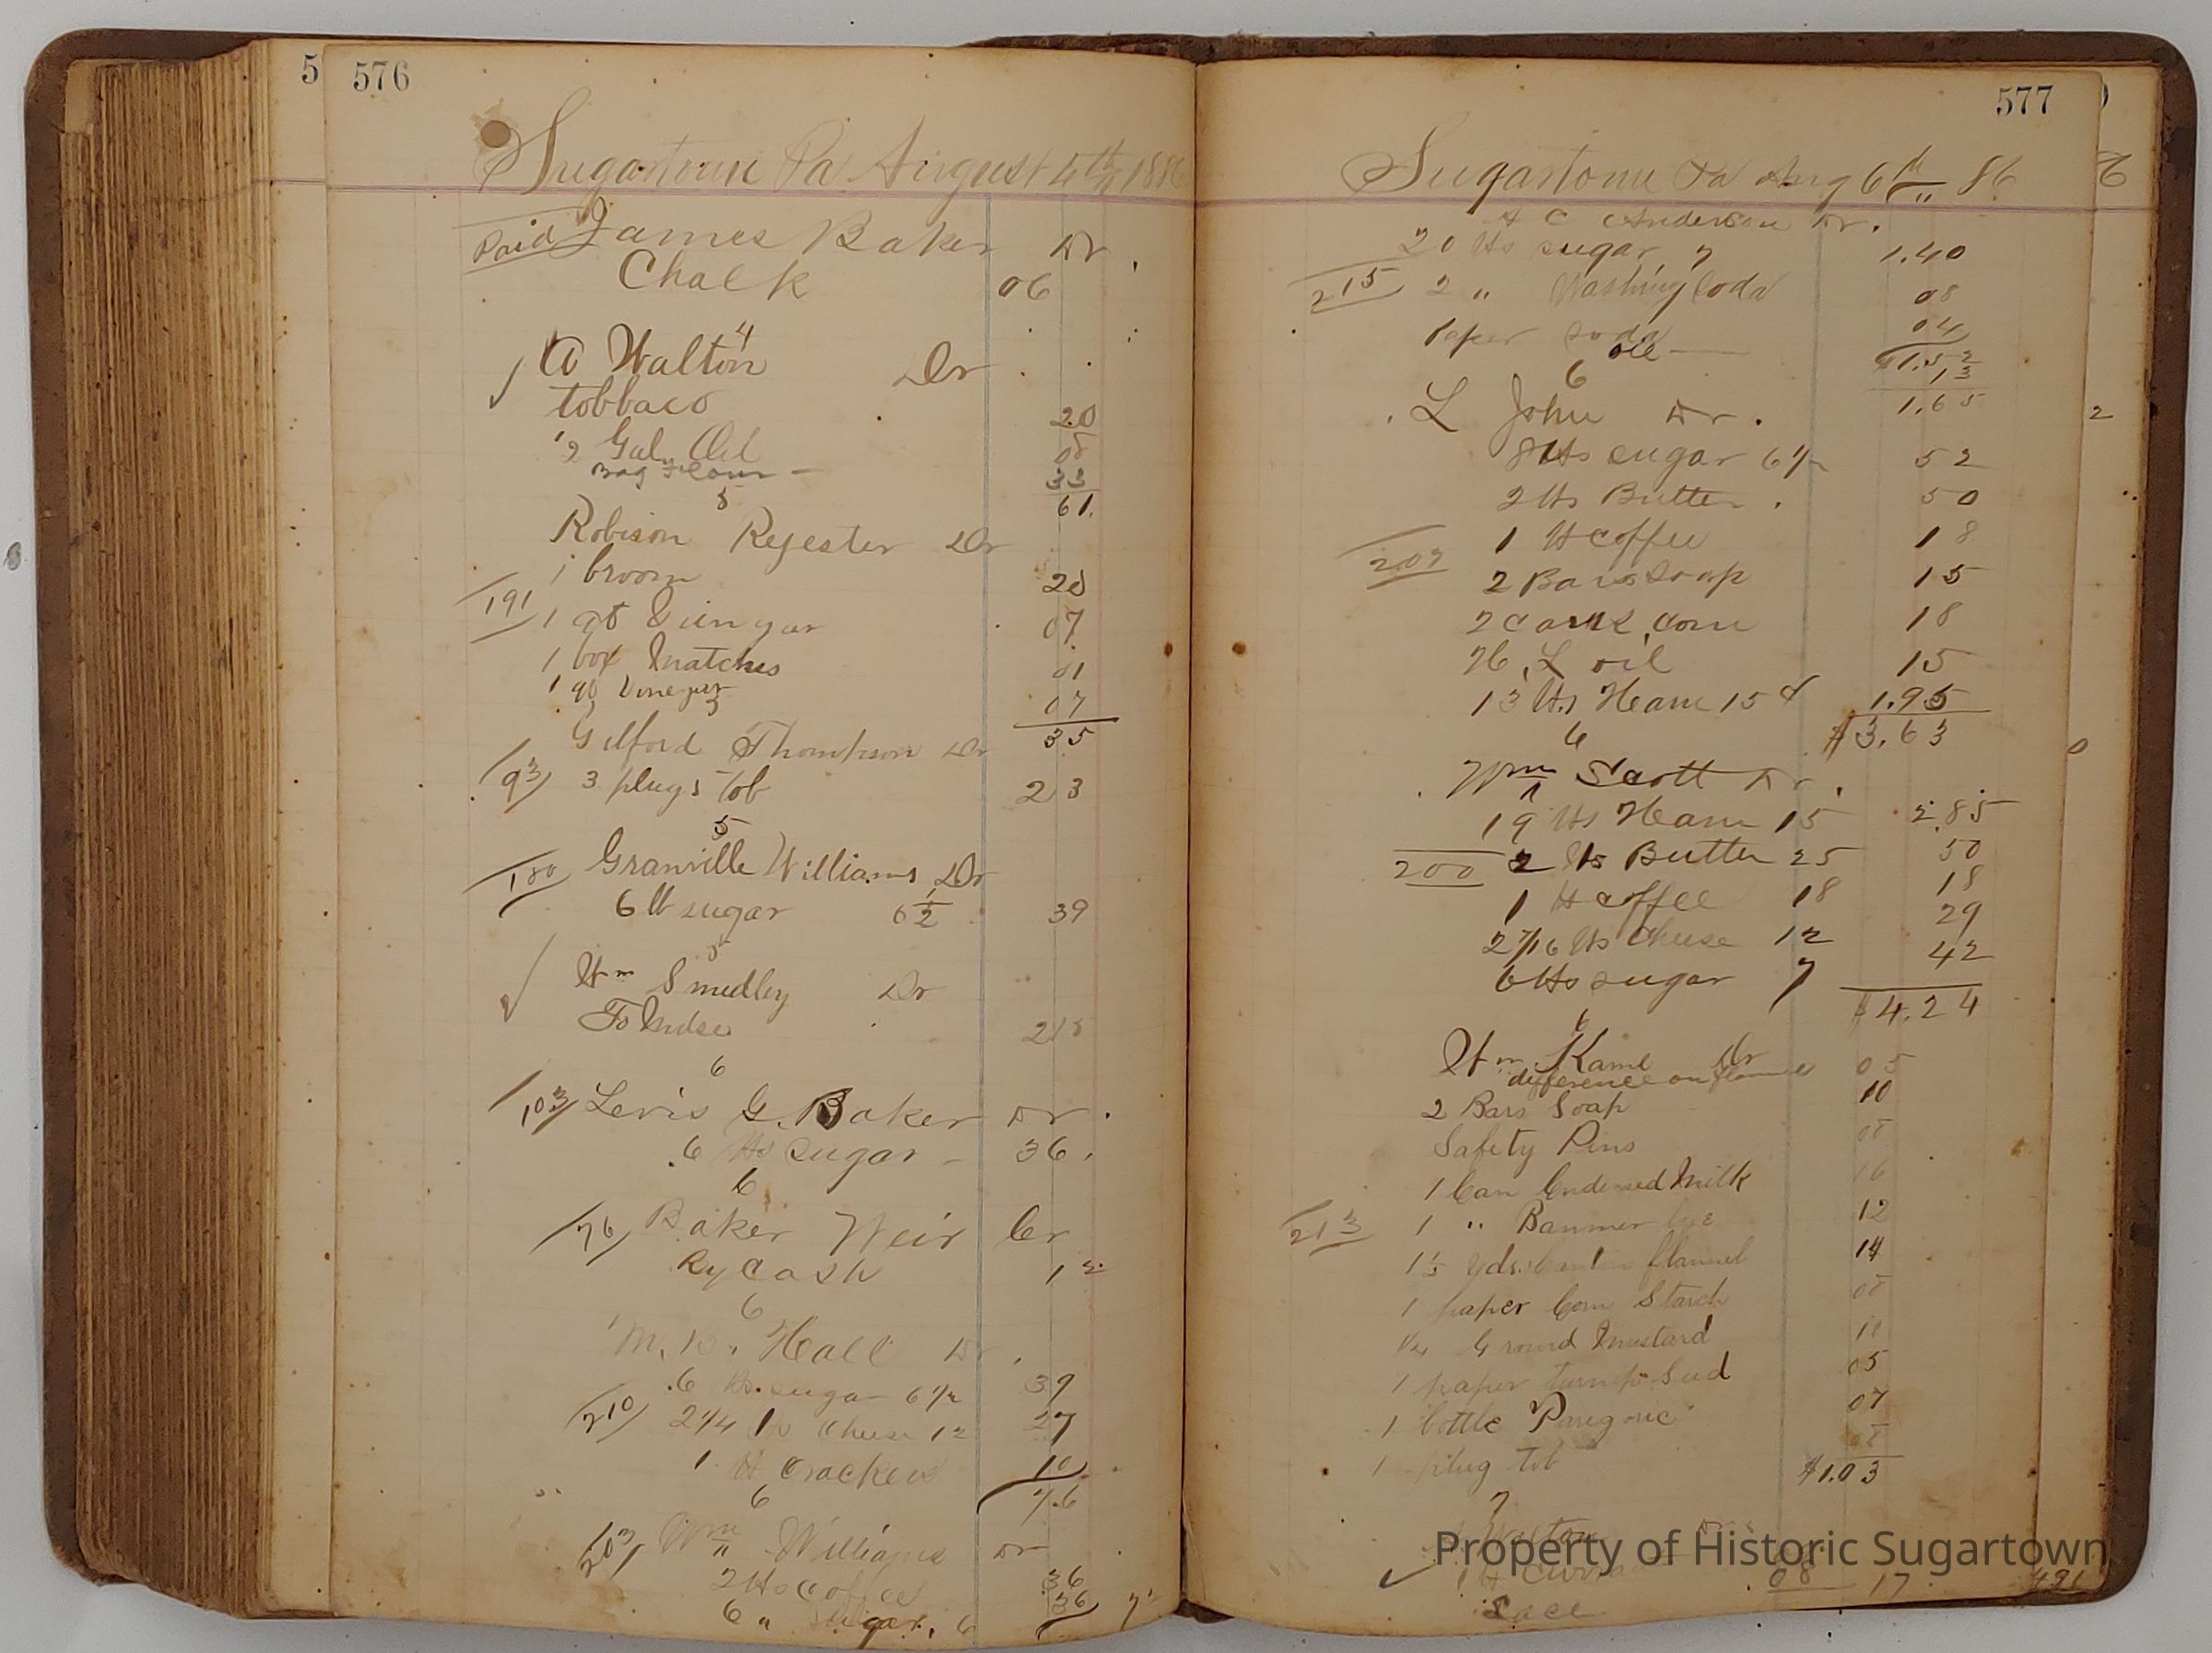 5 576
Sugartown Pa August 4th 1886
Paid James Baker Dr
Chalk 06
4
Walton Dr
tobbaco 20
1/2 Gal. Oil 08
Bag Flour 33
61.
5
Robison Regester Dr
1 broom 20
191 1 qt Vinegar 07
1 box Matches 01
1 qt Vinegar 07
35
5
Gilford Thompson Dr
93 3 plugs Tob 23
5
180 Granville Williams Dr
6 lb sugar 6 1/2 39
5
Wm Smedley Dr
To Mdse 218
6
103 Levis G. Baker Dr.
6 lbs sugar 36.
6
76 Baker Weir Cr
By Cash
6
M. W. Hall Dr.
6 lbs. sugar 6 1/2 39
210 2 1/4 lbs Cheese 12 27
1 lb Crackers 10
76
6
203 Wm Williams Dr
2 lbs Coffee 36
6 " Sugar, 6 36
577
Sugartown Pa Aug 6th 86
A C Anderson Dr.
20 lbs sugar 7 1.40
215 2 " Washing Soda 08
Paper soda 04
$1.52
13
1.65
6
L John Dr.
8 lbs sugar 6 1/2 52
2 lbs Butter. 50
207 1 lb Coffee 18
2 Bars Soap 15
2 cans corn 18
H. L oil 15
13 lbs Ham 15 1.95
$3.63
6
Wm Scott Dr.
19 lbs Ham 15 2.85
200 2 lbs Butter 25 50
1 lb coffee 18 18
2 7/16 lbs Cheese 12 29
6 lbs sugar 7 42
$4.24
6
Wm Kame Dr
difference on flannel 05
2 Bars Soap 10
Safety Pins 08
1 Can Condensed Milk 16
213 1 " Banner Lye 12
Yds. Canton flannel 14
1 paper Corn Starch 08
1/4 Ground Mustard 11
1 paper turnip Seed 05
1 bottle Paregoric 07
1 plug tob 08
$1.03
7
Property of Historic Sugartown
08 17
Lace